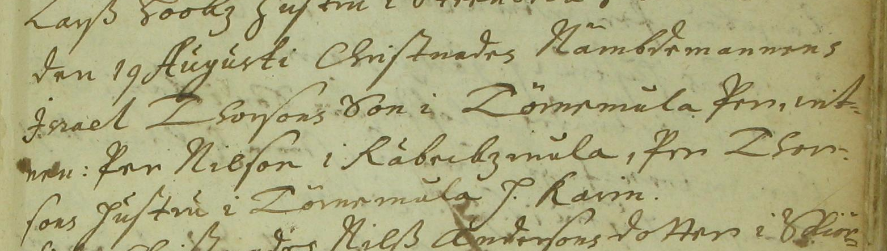 Larß
den 19 Augusti Christnades Nämbdemannens
Israel Thorsons Son i Törnemula Per, wit-
nen: Per Nilson i Räbelzmula, Per Thor-
sons hustru i Törnemula h. Karin.
Nilß Andersons dotter i